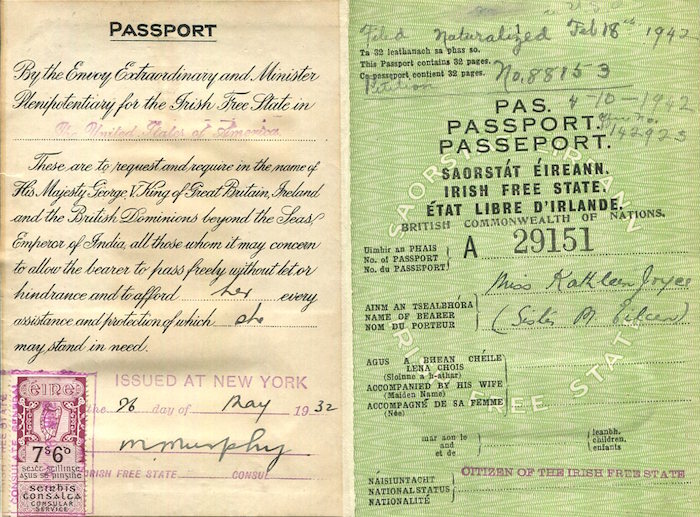 PASSPORT
By the Envoy Extraordinary and Minister
Plenipotentiary for the Irish Free State in
The United States of America.
These are to request and require in the name of
His Majesty George V. King of Great Britain, Ireland
and the British Dominions beyond the Seas,
Emperor of India, all those whom it may concern
to allow the bearer to pass freely without let or
hindrance and to afford her every
assistance and protection of which she
may stand in need.
ISSUED AT NEW YORK
the 26 day of May 1932
M. Murphy
IRISH FREE STATE CONSUL
éire
7s6d
seacht scillinge
agus sé pingine
seirbís
consalca
CONSULAR
SERVICE
Filed Naturalized Feb 18th 1942
Ta 32 leathanach sa phas so.
This Passport contains 32 pages.
Ce passeport contient 32 pages.
Petition No. 88153
4-10-1942
142923
PAS.
PASSPORT.
PASSEPORT.
SAORSTÁT ÉIREANN.
IRISH FREE STATE.
ÉTAT LIBRE D'IRLANDE.
BRITISH COMMONWEALTH OF NATIONS.
Uimhir an PHAIS
No. of PASSPORT
No. du PASSEPORT
A 29151
Miss Kathleen Joyce
AINM AN TSEALBHÓRA
NAME OF BEARER
NOM DU PORTEUR
(Sister M. Eileen)
AGUS A BHEAN CHÉILE
LENA CHOIS
(Sloinne a h-athar)
ACCOMPANIED BY HIS WIFE
(Maiden Name)
ACCOMPAGNÉ DE SA FEMME
(Née)
mar aon le
and
et de
leanbh.
children.
enfants
NÁISIUNTACHT
NATIONAL STATUS
NATIONALITÉ
CITIZEN OF THE IRISH FREE STATE
SAORSTÁT ÉIREANN
IRISH FREE STATE